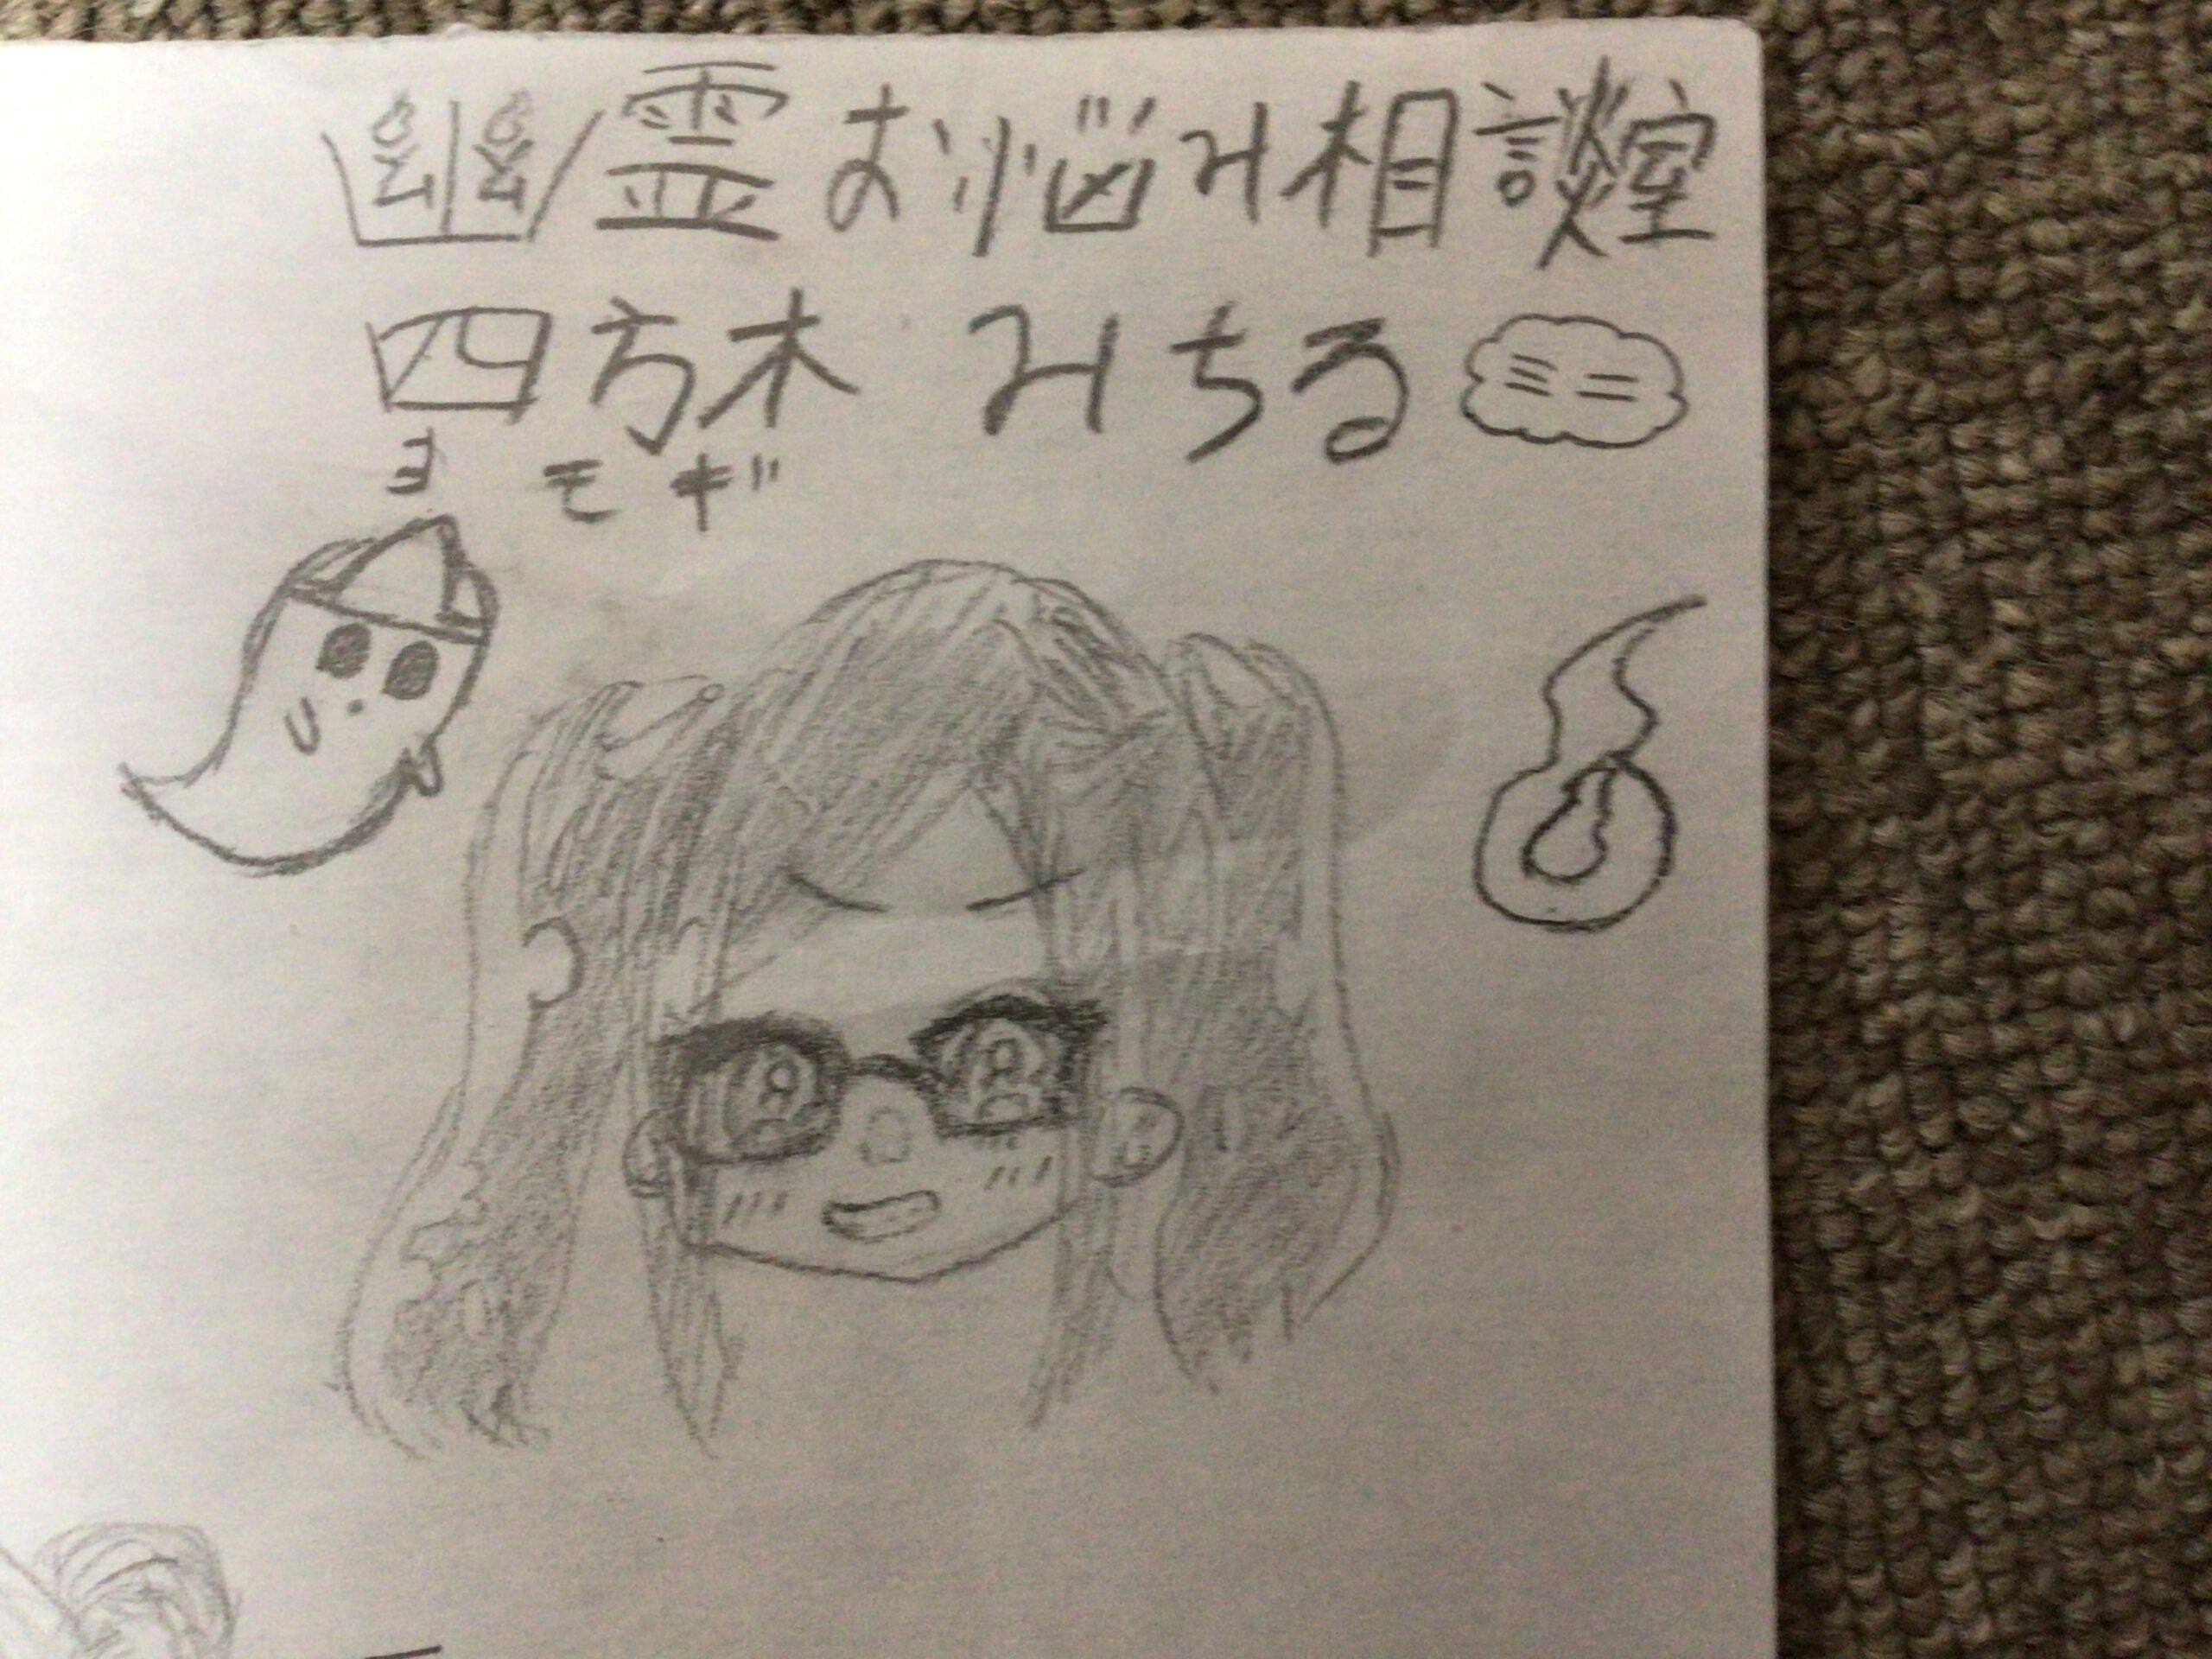 幽霊お悩み相談室
四方木 みちる ミニ
ヨモギ